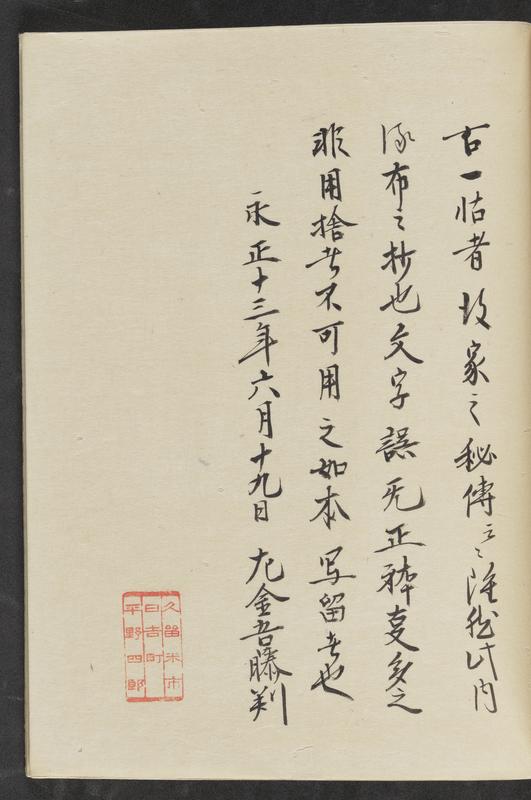 右一帖者故家之秘傳云々雖然此内
流布之抄也文字誤无正躰事多之
非用捨者不可用之如本写留者也
永正十三年六月十九日 左金吾藤判
久留米市
日吉町
平野四郎